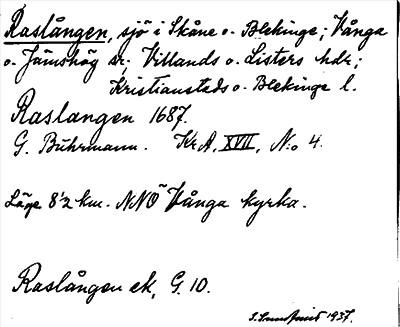 Raslången, sjö i Skåne o. Blekinge; Vånga
o. Jämshög sr; Villands o. Listers hdr;
Kristianstads o. Blekinge l.
Raslangen 1687.
G. Buhrmann. Kr A, XVII, N:o 4.
Läge 8½ km. NNÖ Vånga kyrka.
Raslången ek, G. 10.
1937.